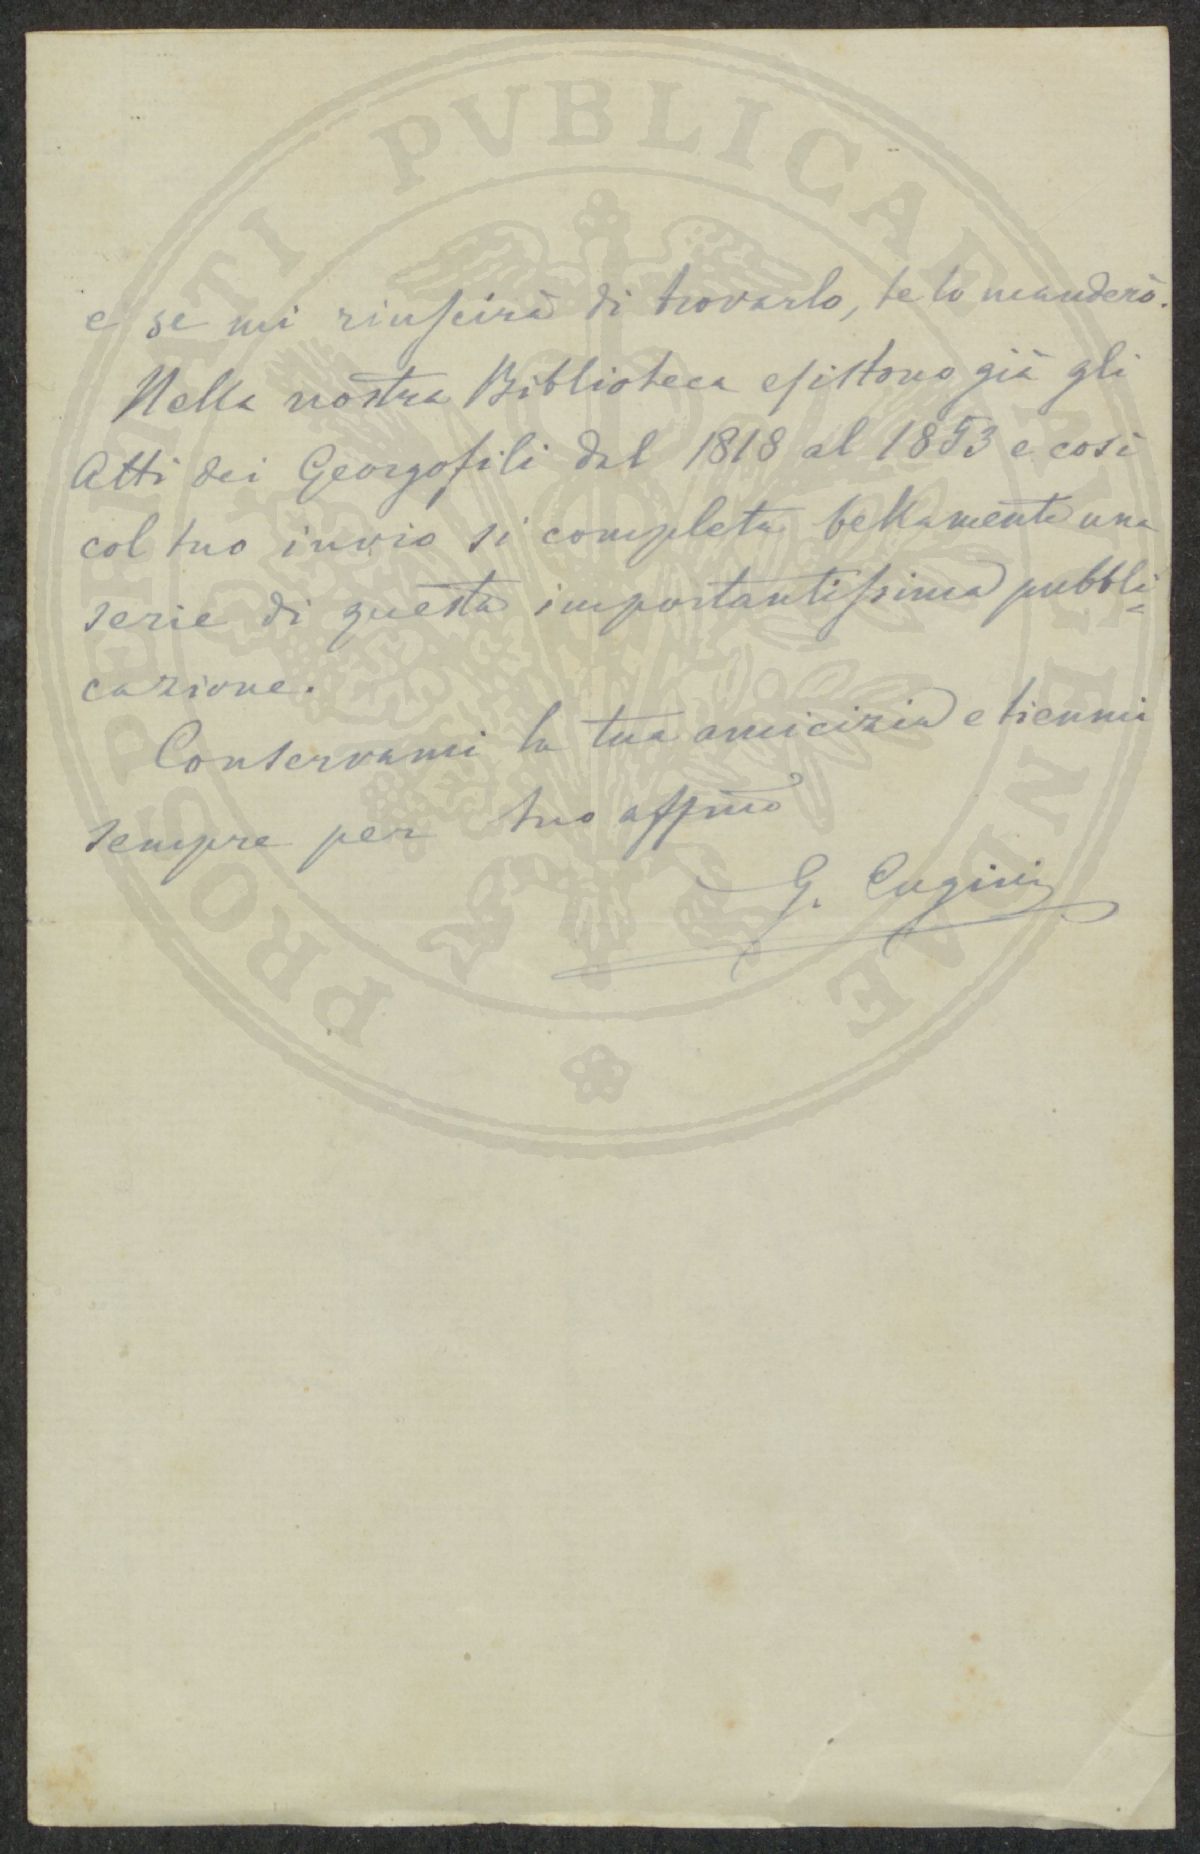 PROSPERITATI PVBLICAE AVGENDAE
e se mi riuscirà di trovarlo, te lo manderò.
Nella nostra Biblioteca esistono già gli
Atti dei Georgofili dal 1818 al 1853 e così
col tuo invio si completa bellamente una
serie di questa importantissima pubbli=
cazione.
Conservami la tua amicizia e tiemmi
sempre per tuo affmo
G. Cugini